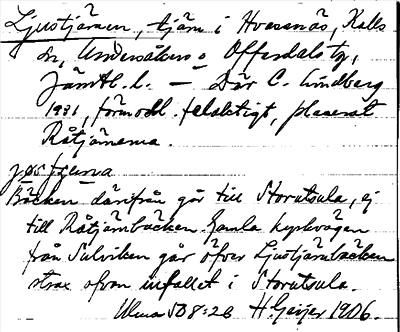 Ljustjärnen, tjärn i Hvassnäs, Kalls
sn, Undersåkers o Offerdals tg,
Jämtl. l. — Där C. Lindberg
1931, förmodl. felaktigt, placerat
Råtjärnerna.
jøs tjena
Bäcken därifrån går till Storutsula, ej
till Råtjärnbäcken. Gamla kyrkvägen
från Sulviken går öfver Ljustjärnbäcken
strax ofvan utfallet i Storutsula.
Ulma 508:26 H Geijer 1906.